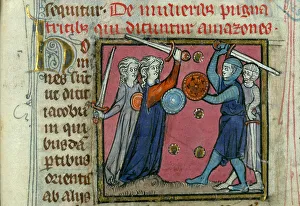 sequitur. De mulieribus pugna
tricibus qui dicuntur amazones.
In
nes sut
ut dicit
iacobus
in qui
busda
ptibus
orientis
ab aliis